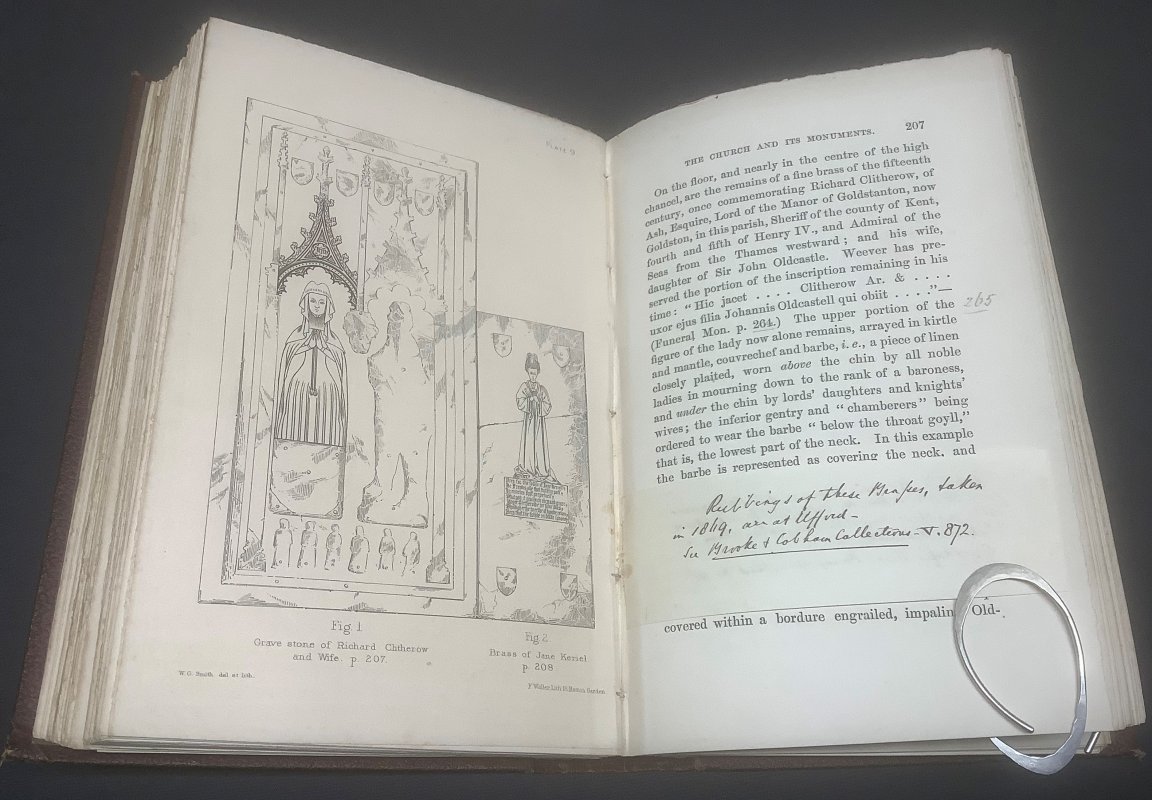 PLATE 9
Fig 1
Grave stone of Richard Clitherow
and Wife. p. 207.
W. G. Smith del et lith.
Fig 2
Brass of Jane Keriel
p. 208
THE CHURCH AND ITS MONUMENTS. 207
On the floor, and nearly in the centre of the high
chancel, are the remains of a fine brass of the fifteenth
century, once commemorating Richard Clitherow, of
Ash, Esquire, Lord of the Manor of Goldstanton, now
Goldston, in this parish, Sheriff of the county of Kent,
fourth and fifth of Henry IV., and Admiral of the
Seas from the Thames westward; and his wife,
daughter of Sir John Oldcastle. Weever has pre-
served the portion of the inscription remaining in his
time: “Hic jacet . . . . Clitherow Ar. & . . . .
uxor ejus filia Johannis Oldcastell qui obiit . . . .”—
(Funeral Mon. p. 264.) The upper portion of the 265
figure of the lady now alone remains, arrayed in kirtle
and mantle, couvrechef and barbe, i. e., a piece of linen
closely plaited, worn above the chin by all noble
ladies in mourning down to the rank of a baroness,
and under the chin by lords’ daughters and knights’
wives; the inferior gentry and “chamberers” being
ordered to wear the barbe “below the throat goyll,”
that is, the lowest part of the neck. In this example
the barbe is represented as covering the neck, and
Rubbings of these Brasses, taken
in 1869, are at Ufford—
See Brooke & Cobham Collections—V. 872.
covered within a bordure engrailed, impalin Old-